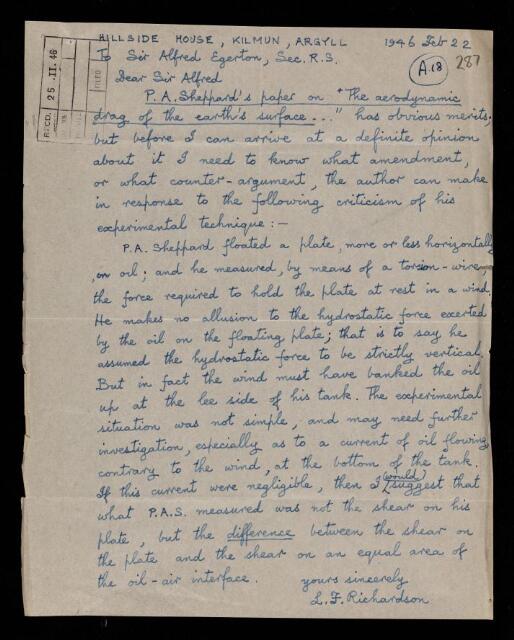 HILLSIDE HOUSE, KILMUN, ARGYLL 1946 Feb 22
To Sir Alfred Egerton, Sec. R.S.
A.18 287
RECD. 25 .II. 46
FILED
Dear Sir Alfred
P.A. Sheppard's paper on "The aerodynamic
drag of the earth's surface..." has obvious merits;
but before I can arrive at a definite opinion
about it I need to know what amendment,
or what counter-argument, the author can make
in response to the following criticism of his
experimental technique :—
P.A. Sheppard floated a plate, more or less horizontally
, on oil; and he measured, by means of a torsion-wire
the force required to hold the plate at rest in a wind.
He makes no allusion to the hydrostatic force exerted
by the oil on the floating plate; that is to say he
assumed the hydrostatic force to be strictly vertical.
But in fact the wind must have banked the oil
up at the lee side of his tank. The experimental
situation was not simple, and may need further
investigation, especially as to a current of oil flowing
contrary to the wind, at the bottom of the tank.
If this current were negligible, then I would suggest that
what P.A.S. measured was not the shear on his
plate, but the difference between the shear on
the plate and the shear on an equal area of
the oil-air interface. yours sincerely
L.F. Richardson